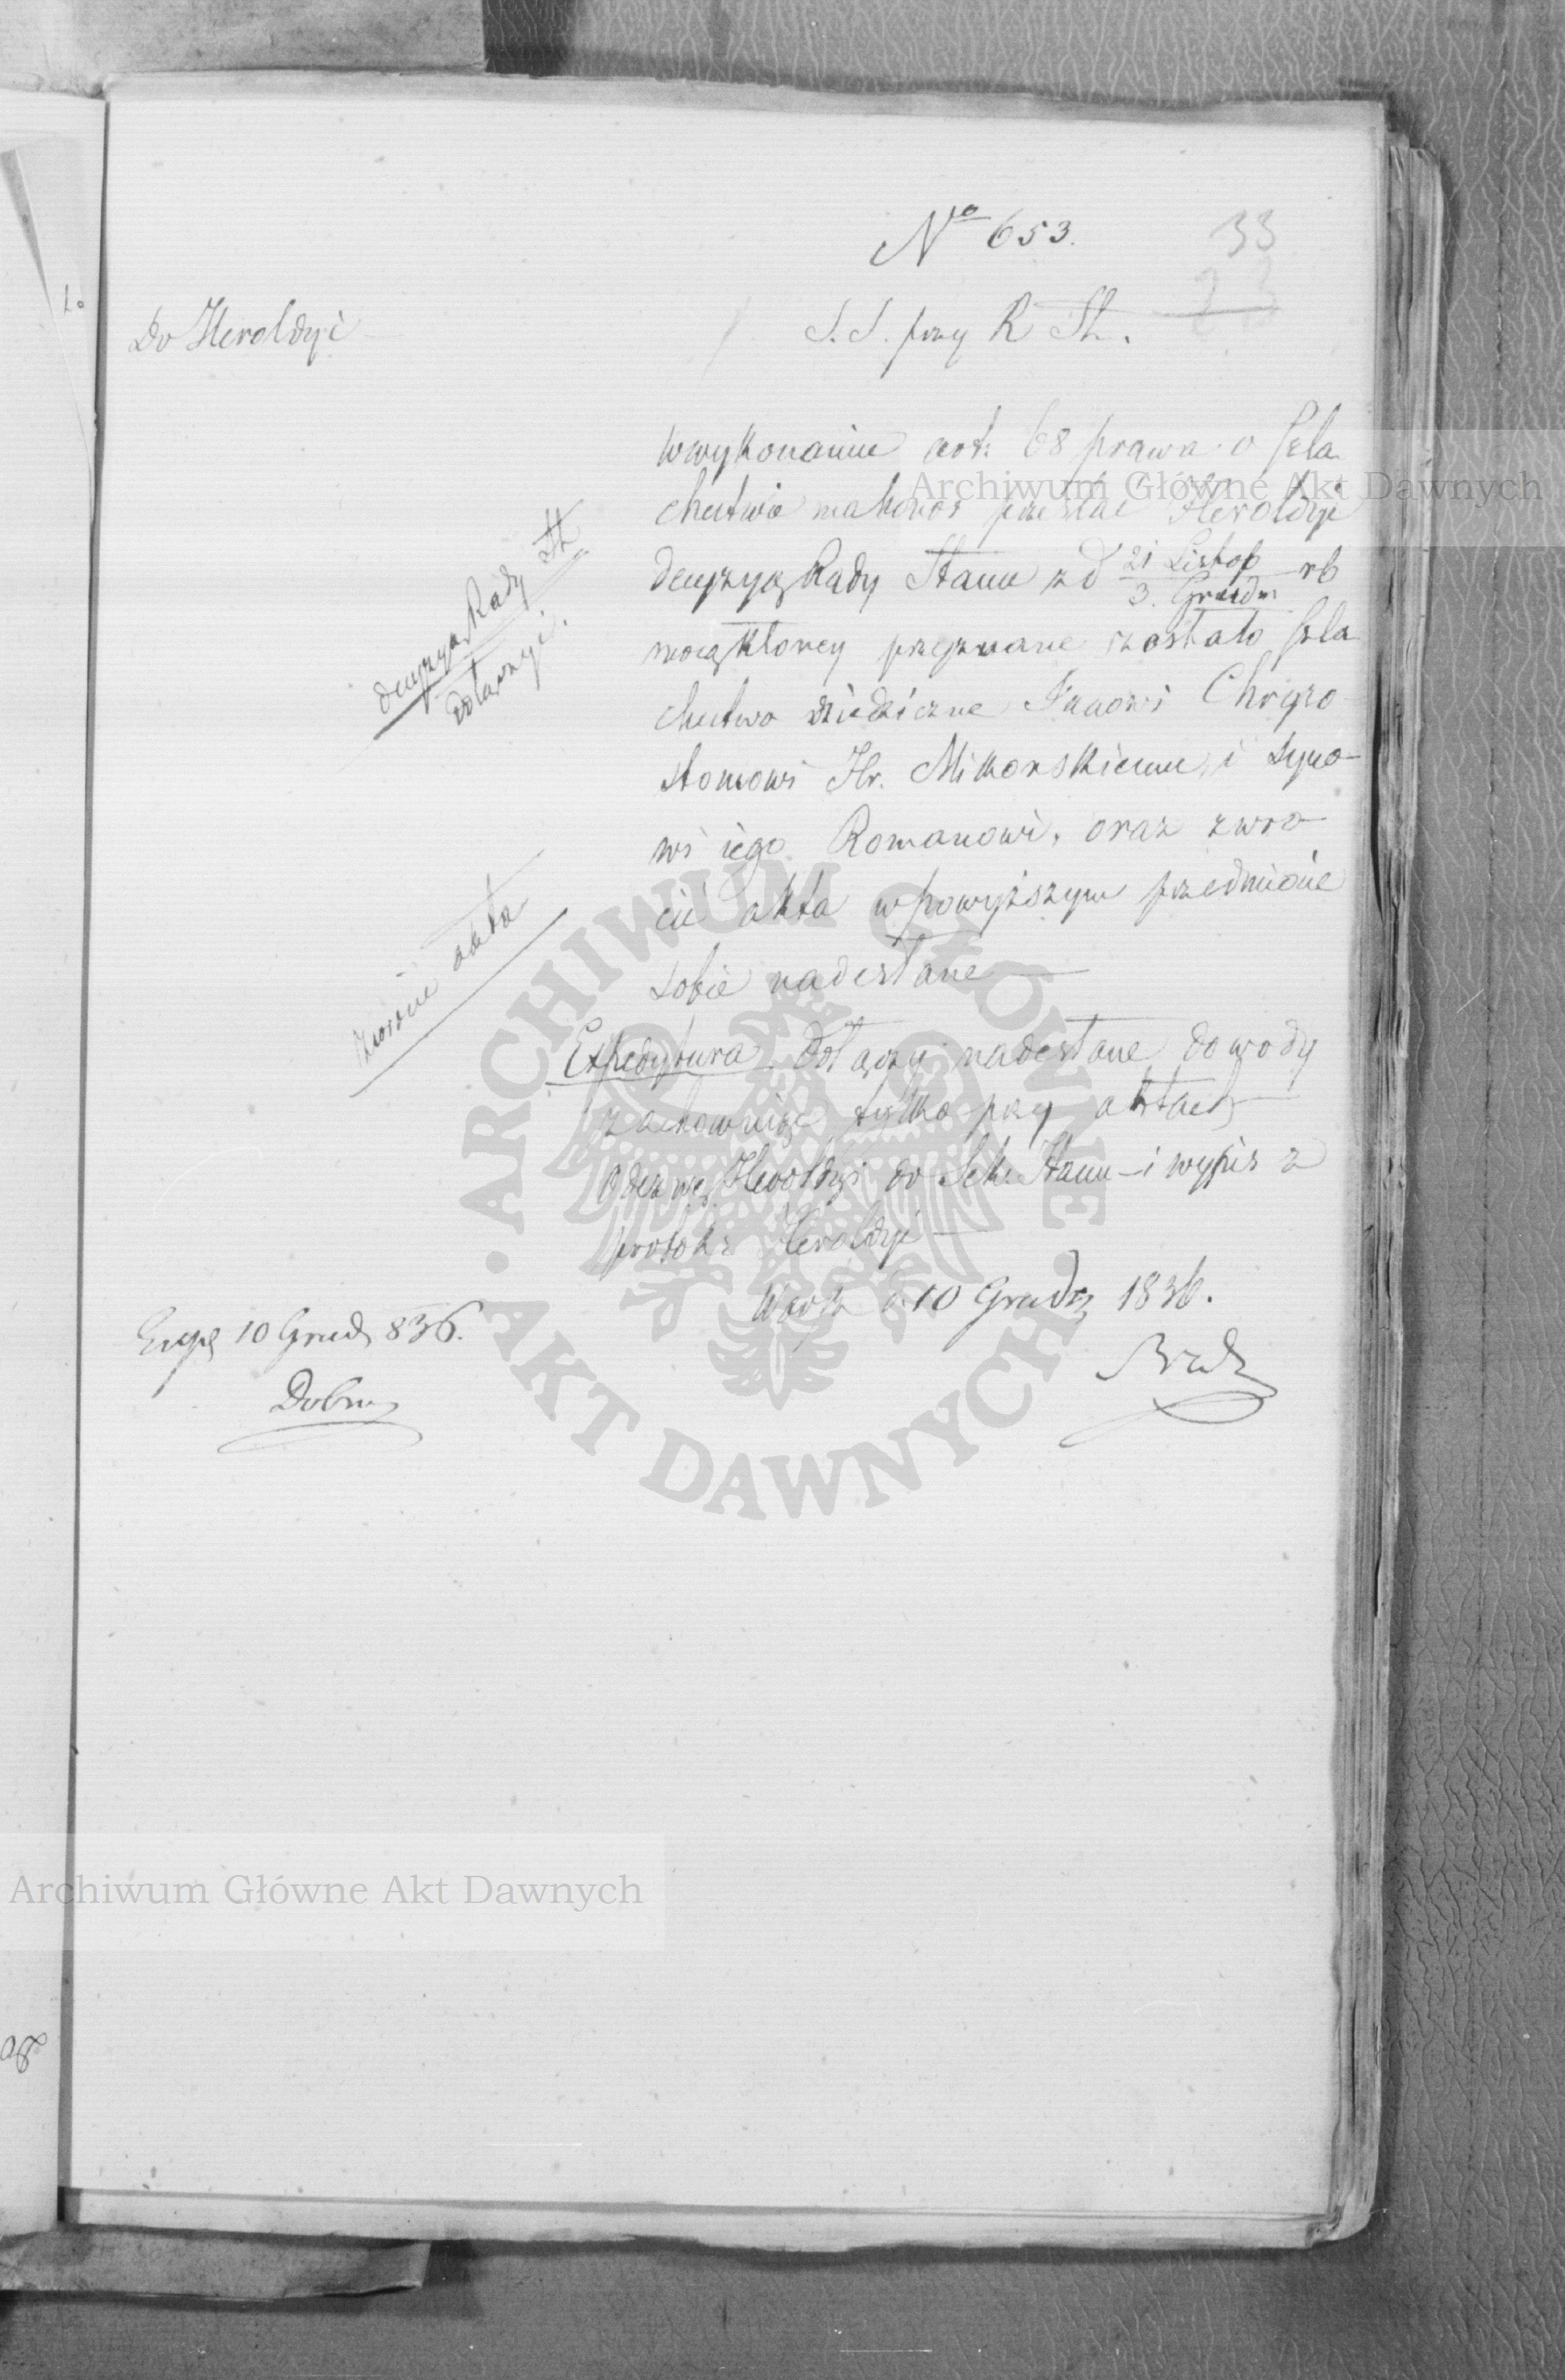 No 653.
33
23
Do Heroldyi
S. S. przy R St.
w wykonaniu art: 68 prawa o szla
chectwie ma honor przesłać Heroldyi
decyzyą Rady Stanu z d 21 Listop / 3. Grudn rb
mocą ktorey przyznane zostało szla
chectwo dziedziczne Janowi Chryzo
stomowi Hr. Mikorskiemu, i syno-
wi iego Romanowi, oraz zwro-
cić akta w powyższym przedmiocie
sobie nadesłane —
decyzya Rady St
dołączyć.
zwrócić akta
Expedytura dołączy nadesłane dowody
zachowując tylko przy aktach
odezwę Heroldyi do Sek. Stanu – i wypis z
protok: Heroldyi —
Warsz d. 10 Grudn 1836.
10 Grud 836.
Archiwum Główne Akt Dawnych
ARCHIWUM GŁÓWNE • AKT DAWNYCH •
Archiwum Główne Akt Dawnych